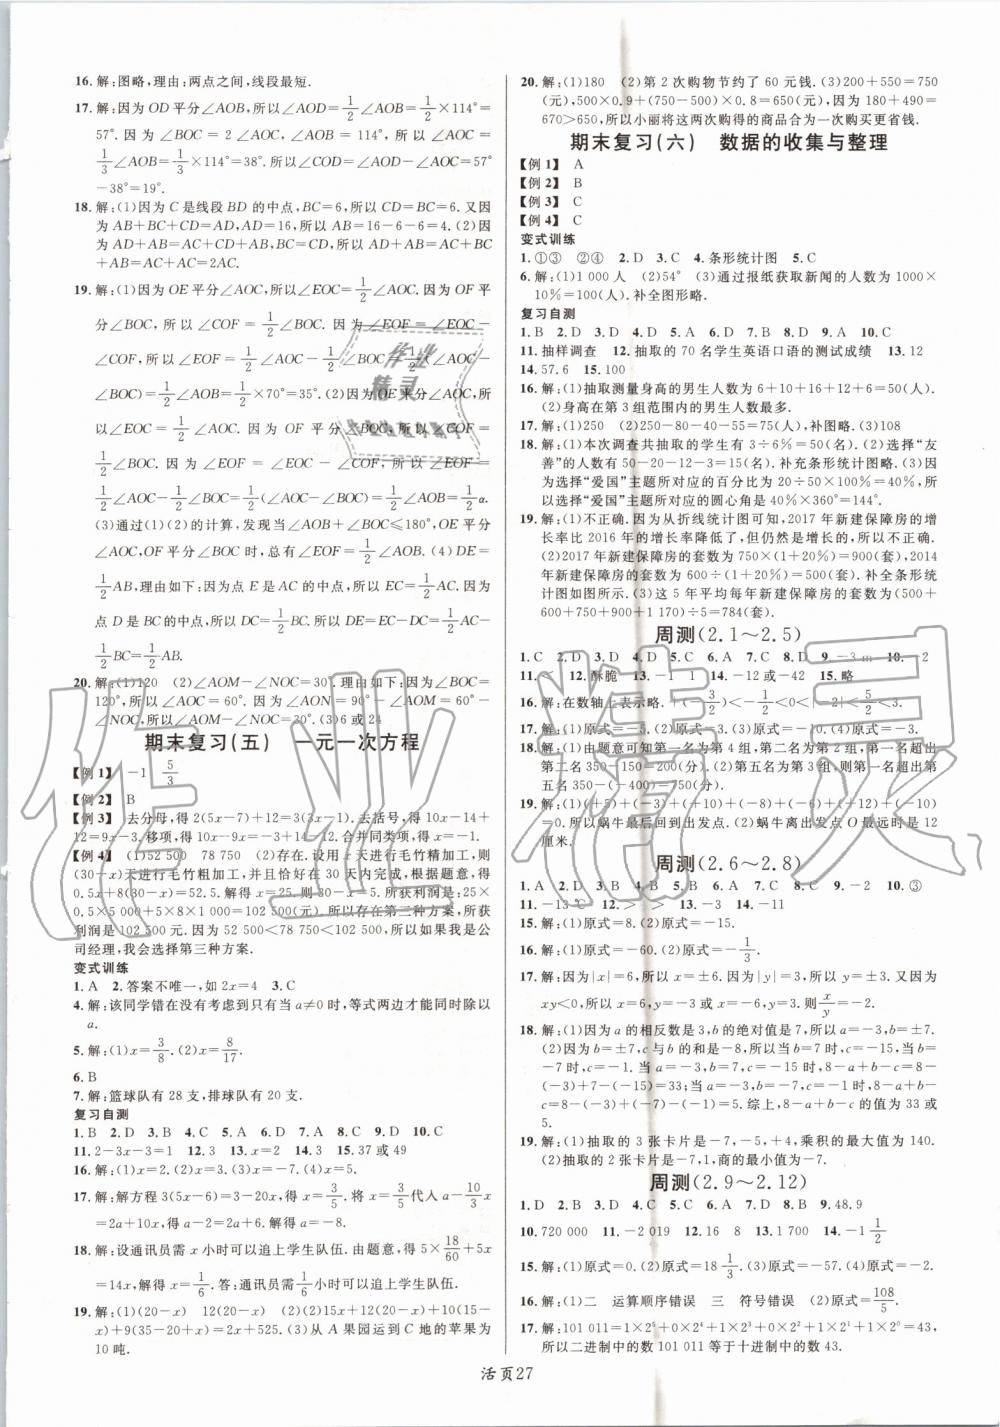 16. 解:图略,理由:两点之间,线段最短.
17. 解:因为 OD 平分∠AOB,所以∠AOD=1/2∠AOB=1/2×114°=
57°. 因为∠BOC=2∠AOC,所以∠AOC=1/3∠AOB=
1/3×114°=38°. 所以∠COD=∠AOD-∠AOC=57°
-38°=19°.
18. 解:(1)因为 C 是线段 BD 的中点,BC=6,所以 BC=CD=6. 又因
为 AB+BC+CD=AD,AD=16,所以 AB=16-6-6=4. (2)因
为 AD+AB=AC+CD+AB,BC=CD,所以 AD+AB=AC+BC
+AB=AC+AC=2AC.
19. 解:(1)因为 OE 平分∠AOC,所以∠EOC=1/2∠AOC. 因为 OF 平
分∠BOC,所以∠COF=1/2∠BOC. 因为∠EOF=∠EOC-
∠COF,所以∠EOF=1/2∠AOC-1/2∠BOC=1/2×
∠AOB=1/2×70°=35°. (2)因为 OE 平分∠AOC,所以∠EOC
=1/2∠AOC. 因为 OF 平分∠BOC,所以∠COF=
1/2∠BOC. 因为∠EOF=∠EOC-∠COF,所以∠EOF=
1/2∠AOC-1/2∠BOC=1/2(∠AOC-∠BOC)=1/2∠AOB=1/2α.
(3)通过(1)(2)的计算,发现当∠AOB+∠BOC≤180°,OE 平分
∠AOC,OF 平分∠BOC时,∠EOF=1/2∠AOB. (4)DE=
1/2AB,理由如下:因为点 E 是 AC 的中点,所以 EC=1/2AC. 因为
点 D 是 BC 的中点,所以 DC=1/2BC. 所以 DE=EC-DC=1/2AC-
1/2BC=1/2AB.
20. 解:(1)120 (2)∠AOM-∠NOC=30°. 理由如下:因为∠MON=
90°,∠AOC=60°. 因为∠AON=90°-∠AOM=60°-
∠NOC,所以∠AOM-∠NOC=30°. (3)6 或 24
期末复习(五) 一元一次方程
【例 1】 -1 5/3
【例 2】 B
【例 3】 去分母,得 2(5x-7)+12=3(3x-1). 去括号,得 10x-14
+12=9x-3. 移项,得 10x-9x=-3+14-12. 合并同类项,得 x=-1.
【例 4】 (1)52 500 78 750 (2)存在. 设用 x 天进行毛竹精加工,则
(30-x)天进行毛竹粗加工,并且恰好在 30 天内完成,根据题意,得
0.5x+8(30-x)=52.5. 解得 x=25. 则 30-x=5. 所获利润是:25×
0.5×5 000+5×8×1 000=102 500(元). 所以存在第三种方案,所获
利润是 102 500 元. 因为 52 500<78 750<102 500,所以如果我是公
司经理,我会选择第三种方案.
变式训练
1. A 2. 答案不唯一,如 2x=4 3. C
4. 解:该同学错在没有考虑到只有当 a≠0 时,等式两边才能同时除以
a.
5. 解:(1)x=3/8. (2)x=8/17.
6. B
7. 解:篮球队有 28 支,排球队有 20 支.
复习自测
1. B 2. D 3. B 4. C 5. A 6. C 7. A 8. D 9. D 10. C
11. 2-3x-3=1 12. 3 13. x=2 14. 3 15. 37 或 49
16. 解:(1)x=2. (2)x=3. (3)x=-20. (4)x=2.
17. 解:解方程 3(5x-6)=3-20x,得 x=3/5. 将 x=3/5代入 a-10/3x
=2a+10x,得 a-2=2a+6. 解得 a=-8.
18. 解:设通讯员需 x 小时可以追上学生队伍. 由题意,得 5×18/60+5x
=14x,解得 x=1/6. 答:通讯员需1/6小时可以追上学生队伍.
19. 解:(1)(20-x) 12(20-x) (2)(2)15x+12(20-x)+10(15-
x)+9(35-20+x)=2x+525. (3)从 A 果园运到 C 地的苹果为
10 吨.
20. 解:(1)180 (2)第 2 次购物节约了 60 元钱. (3)200+550=750
(元),500×0.9+(750-500)×0.8=650(元). 因为 180+490=
670>650,所以小丽将这两次购得的商品合为一次购买更省钱.
期末复习(六) 数据的收集与整理
【例 1】 A
【例 2】 B
【例 3】 C
【例 4】 C
变式训练
1. ①③ ②④ 2. D 3. C 4. 条形统计图 5. C
6. 解:(1)1 000 人 (2)54° (3)通过报纸获取新闻的人数为 1000×
10%=100(人). 补全图形略.
复习自测
1. B 2. D 3. D 4. D 5. D 6. D 7. B 8. D 9. A 10. C
11. 抽样调查 12. 抽取的 70 名学生英语口语的测试成绩 13. 12
14. 57.6 15. 100
16. 解:(1)抽取测量身高的男生人数为 6+10+16+12+6=50(人).
(2)身高在第 3 组范围内的男生人数最多.
17. 解:(1)250 (2)250-80-40-55=75(人),补图略. (3)108
18. 解:(1)本次调查共抽取的学生有 3÷6%=50(名). (2)选择“友
善”的人数有 50-20-12-3=15(名). 补充条形统计图略. (3)因
为选择“爱国”主题所对应的百分比为 20÷50×100%=40%,所
以选择“爱国”主题所对应的圆心角是 40%×360°=144°.
19. 解:(1)不正确. 因为从折线统计图可知,2017 年新建保障房的增
长率比 2016 年的增长率降低了,但仍然是增长的,所以不正确.
(2)2017 年新建保障房的套数为 750×(1+20%)=900(套),2014
年新建保障房的套数为 600÷(1+20%)=500(套). 补全条形统
计图如图所示. (3)这 5 年平均每年新建保障房的套数为(500+
600+750+900+1 170)÷5=784(套).
周测(2.1～2.5)
1. C 2. D 3. D 4. D 5. C 6. A 7. C 8. D 9. -3 m 10. -2
12. 酥脆 13. -1 1 14. -12 或-42 15. 略
17. 解:(1)原式=5. (2)原式=0. (3)原式=10. (4)原式=
18. 解:(1)由题意可知第一名为第 4 组,第二名为第 2 组,第一名超出
第二名 350-150=200(分). (2)第五名为第 3 组,则第一名超出第
五名 350-(-400)=750(分).
19. 解:(1)(+5)+(-3)+(+10)+(-8)+(-6)+(+12)+(-10)
=0. 所以蜗牛最后回到出发点. (2)蜗牛离出发点 O 最远时是 12
厘米.
周测(2.6～2.8)
1. A 2. D 3. C 4. A 5. D 6. D 7. B 8. C 9. -2 10. ③
11. -13 ℃ 12. > > 13. -3 14. -11
15. 解:(1)原式=8. (2)原式=-15.
16. 解:(1)原式=-60. (2)原式=-1/3.
17. 解:因为|x|=6,所以 x=±6. 因为|y|=3,所以 y=±3. 又因为
xy<0,所以 x=6,y=-3 或 x=-6,y=3,则x/y=-2.
18. 解:(1)因为 a 的相反数是 3,b 的绝对值是 7,所以 a=-3,b=±7.
(2)因为 b=±7,c 与 b 的和是-8,所以当 b=7 时,c=-15,当 b=
-7 时,c=-1. 当 a=-3,b=7,c=-15 时,8-a+b-c=8-
(-3)+7-(-15)=33;当 a=-3,b=-7,c=-1 时,8-a+b-
c=8-(-3)+(-7)-(-1)=5. 综上,8-a+b-c 的值为 33 或
5.
19. 解:(1)抽取的 3 张卡片是-7,-5,+4,乘积的最大值为 140.
(2)抽取的 2 张卡片是-7,1,商的最小值为-7.
周测(2.9～2.12)
1. D 2. B 3. C 4. C 5. A 6. A 7. D 8. B 9. 48.9
10. 720 000 11. -2 019 12. 16 8 13. 1 700 14. -1 1/2
15. 解:(1)原式=0. (2)原式=18 1/3. (3)原式=1.
16. 解:(1)二 运算顺序错误 三 符号错误 (2)原式=108/5.
17. 解:101 011=1×2⁵+0×2⁴+1×2³+0×2²+1×2¹+1×2⁰=43,
所以二进制中的数 101 011 等于十进制中的数 43.
活页27
作业精灵